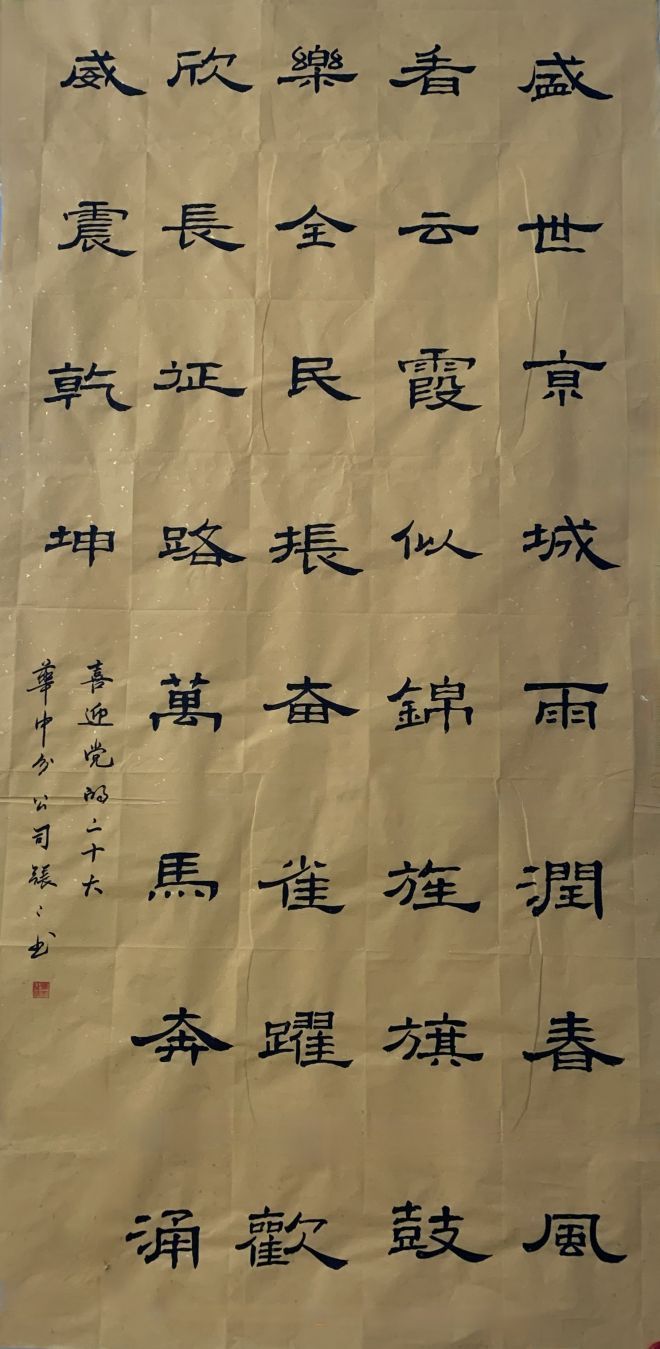 盛世京城雨潤春風
看云霞似錦旌旗鼓
樂全民振奋雀躍歡
欣長征路萬馬奔涌
威震乾坤
喜迎党的二十大
華中分公司張〻书